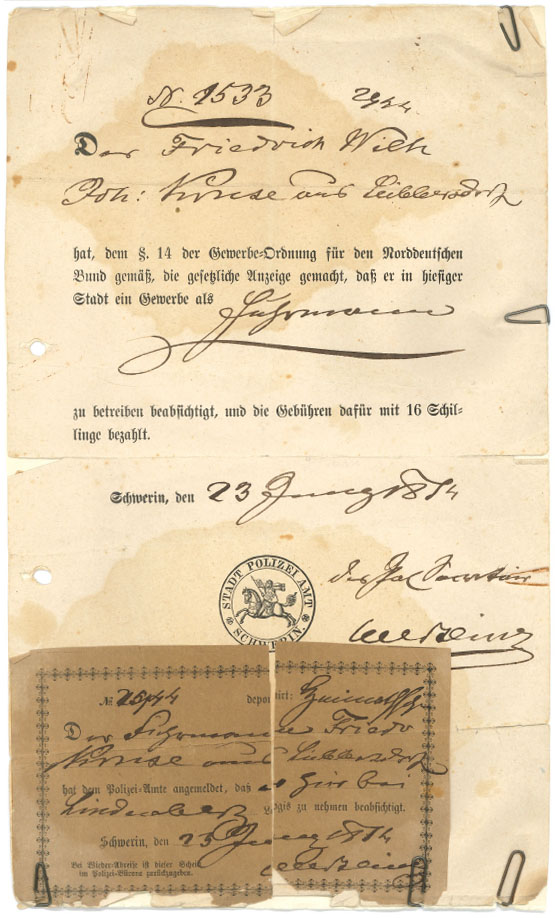 N. 1533
Der Friedrich Wilh
Joh: Kruse aus Lübbersdorf
hat, dem §. 14 der Gewerbe-Ordnung für den Norddeutschen
Bund gemäß, die gesetzliche Anzeige gemacht, daß er in hiesiger
Stadt ein Gewerbe als Fuhrmann
zu betreiben beabsichtigt, und die Gebühren dafür mit 16 Schil-
linge bezahlt.
Schwerin, den 23 Juny 18
STADT POLIZEI AMT
SCHWERIN.
der Pol Secretair
№ deponirt: Heimathsch
Der Fuhrmann Friedr
Kruse aus Lübbersdorf
hat dem Polizei-Amte angemeldet, daß er hier bei
Logis zu nehmen beabsichtigt.
Schwerin, den 23 Juny 18
Bei Wieder-Abreise ist dieser Schein
im Polizei-Büreau zurückzugeben.